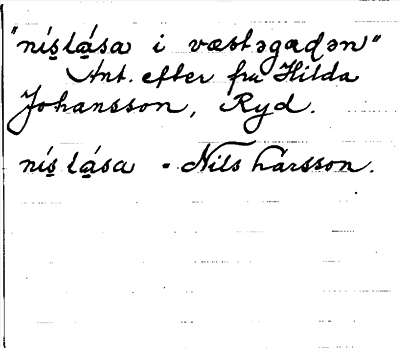 "nís̱lá̱sa i væstəgaɖən"
Ant. efter fru Hilda
Johansson, Ryd.
nís̱ lá̱sa = Nils Larsson.